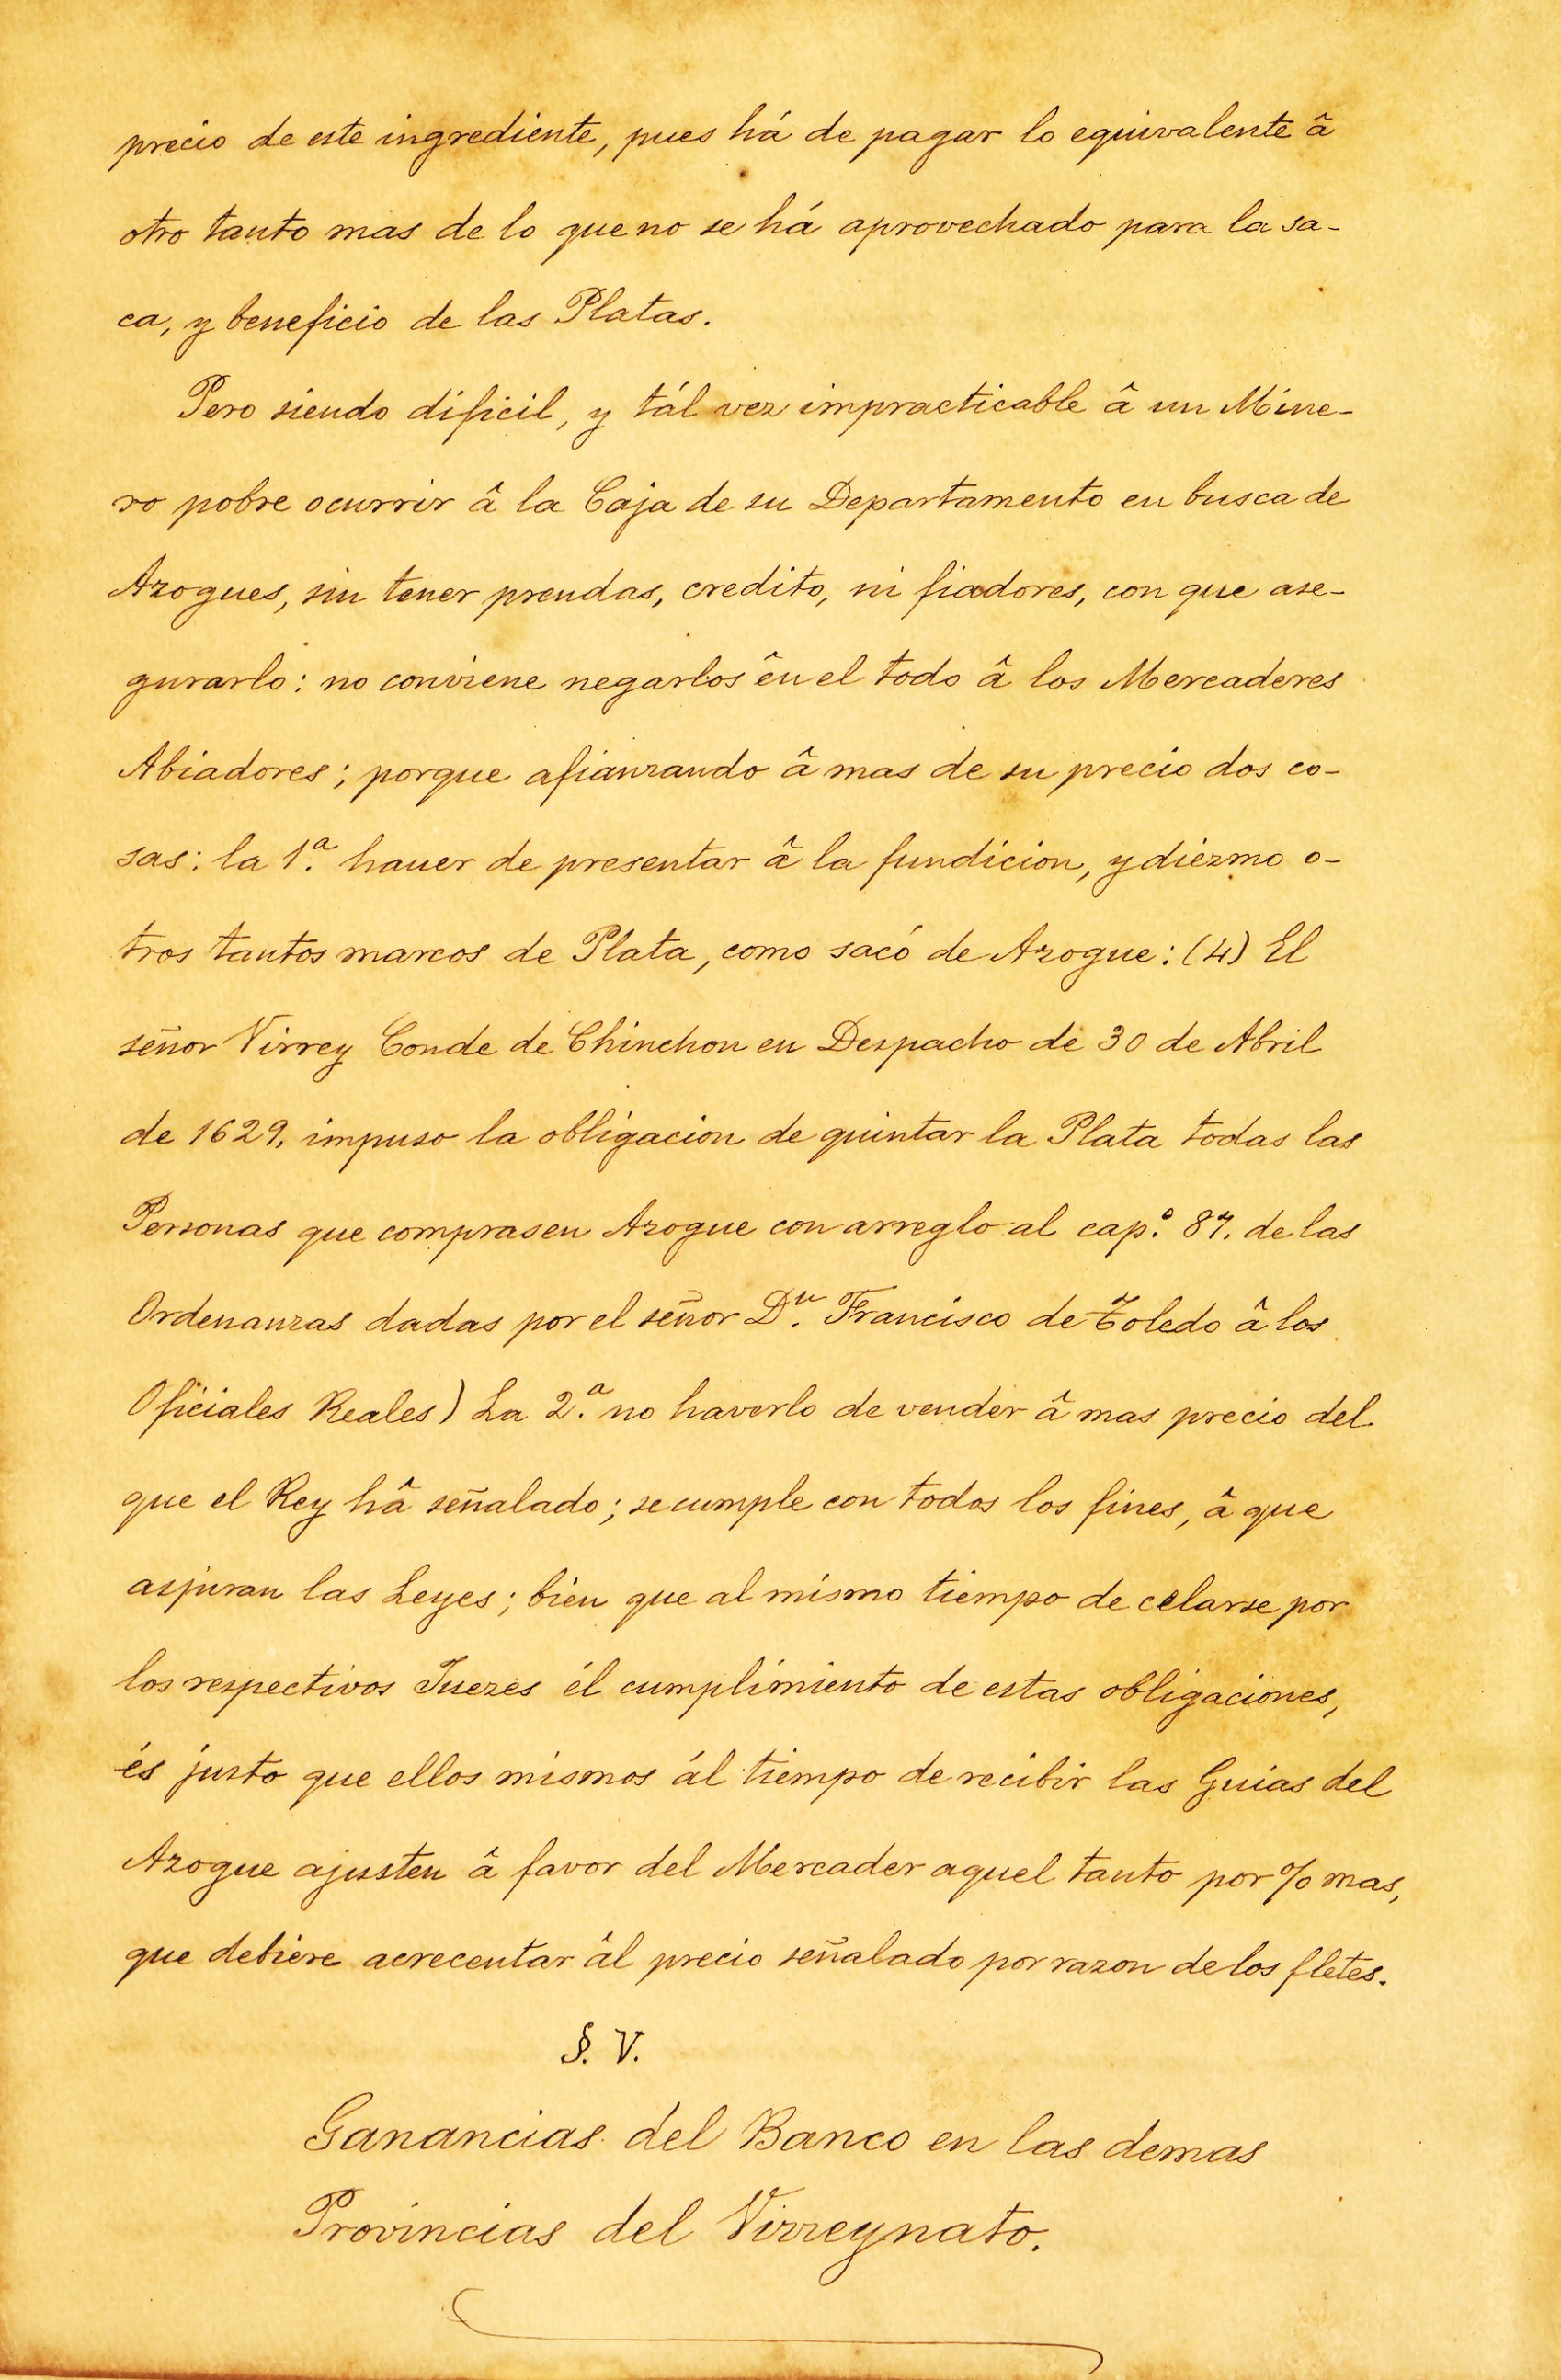 precio de este ingrediente, pues há de pagar lo equivalente â
otro tanto mas de lo que no se há aprovechado para la sa-
ca, y beneficio de las Platas.
Pero siendo dificil, y tál vez impracticable â un Mine-
ro pobre ocurrir â la Caja de su Departamento en busca de
Azogues, sin tener prendas, credito, ni fiadores, con que ase-
gurarlo: no conviene negarlos ên el todo â los Mercaderes
Abiadores; porque afianzando â mas de su precio dos co-
sas: la 1.ª hauer de presentar â la fundicion, y diezmo o-
tros tantos marcos de Plata, como sacó de Azogue: (4) El
señor Virrey Conde de Chinchon en Despacho de 30 de Abril
de 1629. impuso la obligacion de quintar la Plata todas las
Personas que comprasen Azogue con arreglo al cap.º 87. de las
Ordenanzas dadas por el señor D.n Francisco de Toledo â los
Oficiales Reales) La 2.ª no haverlo de vender â mas precio del
que el Rey hâ señalado; se cumple con todos los fines, â que
aspiran las Leyes; bien que al mismo tiempo de celarse por
los respectivos Juezes él cumplimiento de estas obligaciones,
és justo que ellos mismos ál tiempo de recibir las Guias del
Azogue ajusten â favor del Mercader aquel tanto por % mas,
que debiere acrecentar âl precio señalado por razon de los fletes.
§. V.
Ganancias del Banco en las demas
Provincias del Virreynato.